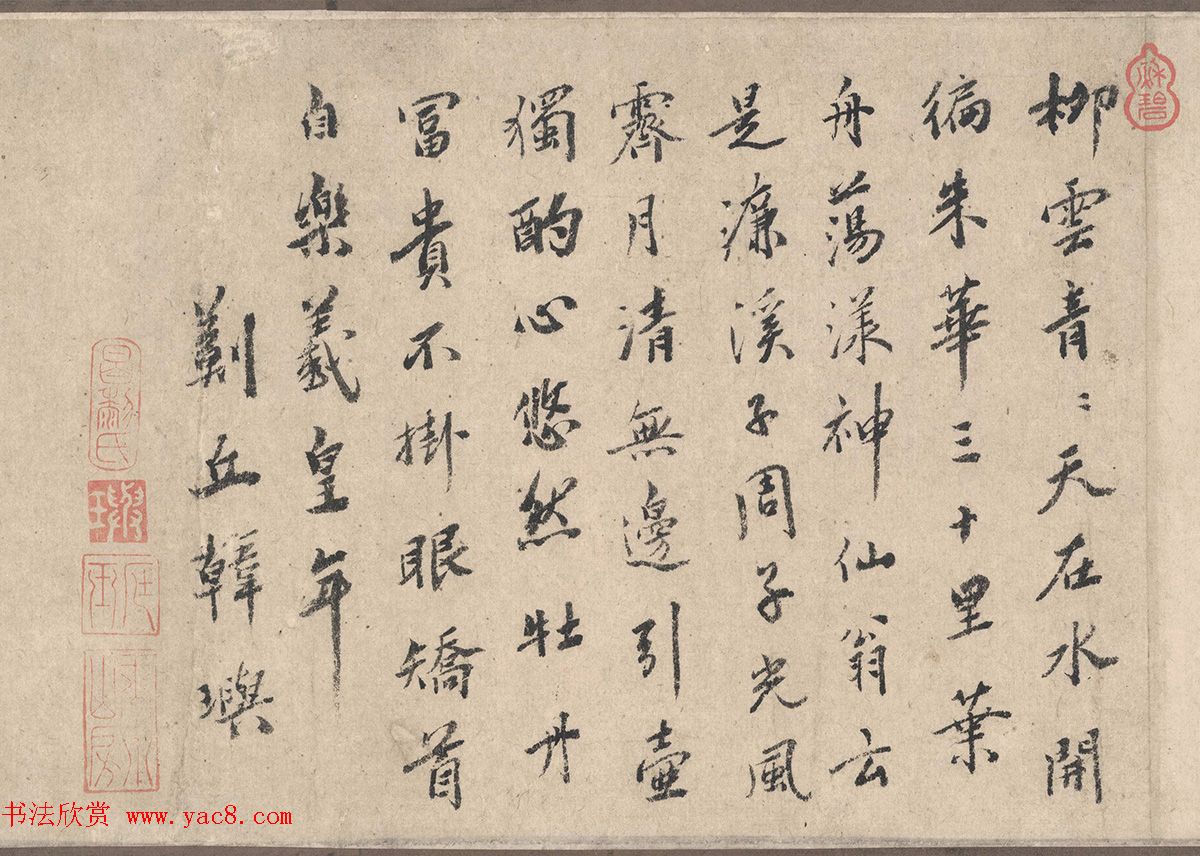 柳雲青〻天在水開
徧朱華三十里葉
舟蕩漾神仙翁云
是濂溪子周子光風
霽月清無邊引壺
獨酌心悠然牡丹
冨貴不掛眼矯首
自樂羲皇年
薊丘韓璵
書法欣赏 www.yac8.com